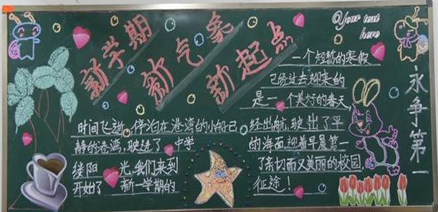 新学期
新气象
新起点
Your text
here
永争第一
一个短暂的寒假
已经过去迎来的
是一个美好的春天
时间飞逝，停泊在港湾的小船已
经出航，驶出了平
静的港湾，驶进了
的海面迎着早晨第一
缕阳光，我们来到
了亲切而又美丽的校园
开始了新一学期的
征途！